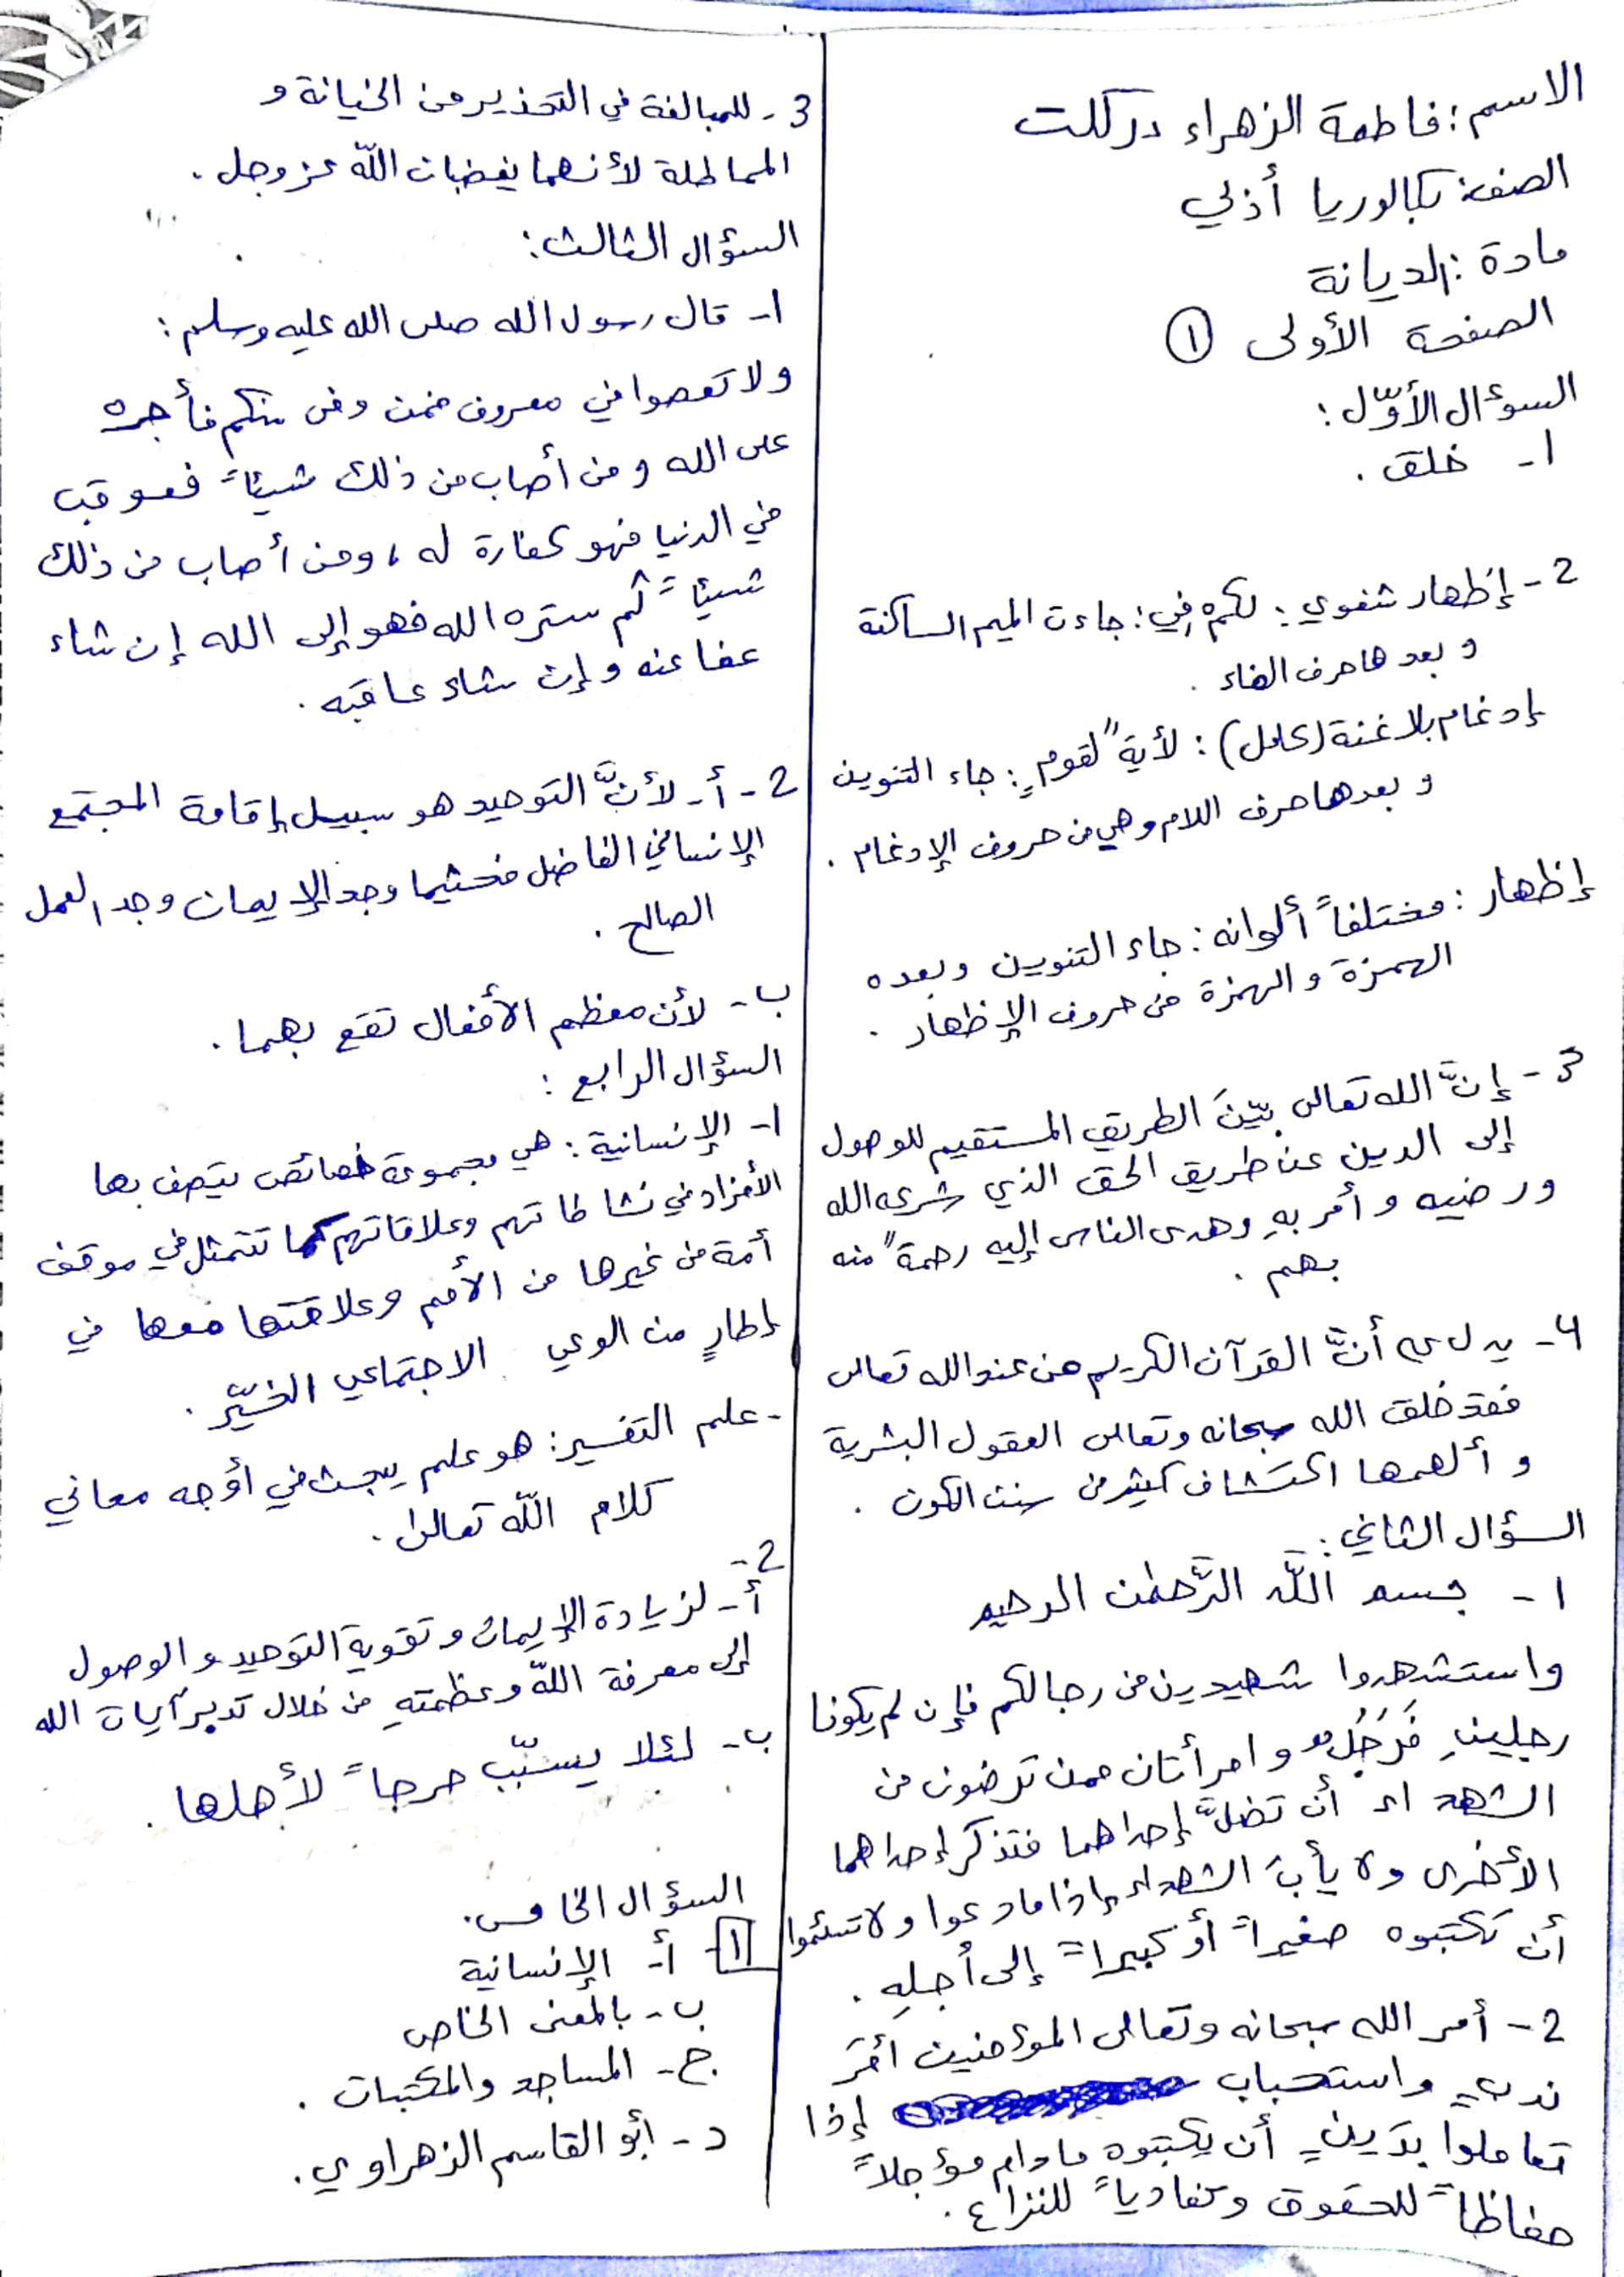 الاسم: فاطمة الزهراء دركلت
الصف: بكالوريا أدبي
مادة: الديانة
الصفحة الأولى ①
السؤال الأوّل:
1- خلق.
2- إظهار شفوي: لكمْ في: جاءت الميم الساكنة
وبعدها حرف الفاء.
إدغام بلا غنة (كامل): لأيةً لقومٍ: جاء التنوين
وبعدها حرف اللام وهي من حروف الإدغام.
إظهار: مختلفاً ألوانه: جاء التنوين وبعده
الهمزة والهمزة من حروف الإظهار.
3- إنَّ الله تعالى بيّنَ الطريق المستقيم للوصول
إلى الدين عن طريق الحق الذي شرعه الله
ورضيه وأمر بهِ وهدى الناس إليه رحمةً منه
بهم.
4- يدل على أنَّ القرآن الكريم من عند الله تعالى
فقد خلق الله سبحانه وتعالى العقول البشرية
وألهمها اكتشاف كثير من سنن الكون.
السؤال الثاني:
1- بسم اللَّه الرَّحمٰن الرحيم
واستشهدوا شهيدين من رجالكم فإن لم يكونا
رجلينِ فَرَجُلٌ وامرأتان ممن ترضون من
الشهداء أن تضلَّ إحداهما فتذكر إحداهما
الأخرى ولا يأبَ الشهداء إذا ما دعوا ولا تسئموا
أن تكتبوه صغيراً أو كبيراً إلى أجلهِ.
2- أمر الله سبحانه وتعالى المؤمنين أمرَ
ندبٍ واستحباب إذا
تعاملوا بدَينٍ أن يكتبوه مادام مؤجلاً
حفاظاً للحقوق وتفادياً للنزاع.
3- للمبالغة في التحذير من الخيانة و
المماطلة لأنهما يغضبان اللّه عز وجل.
السؤال الثالث:
1- قال رسول الله صلى الله عليه وسلم:
ولا تعصوا في معروف فمن وفى منكم فأجره
على الله ومن أصاب من ذلك شيئاً فعوقب
في الدنيا فهو كفارة له، ومن أصاب من ذلك
شيئاً ثم ستره الله فهو إلى الله إن شاء
عفا عنه وإن شاء عاقبه.
2- أ- لأنَّ التوحيد هو سبيل إقامة المجتمع
الإنساني الفاضل فحيثما وجد الإيمان وجد العمل
الصالح.
ب- لأن معظم الأفعال تقع بهما.
السؤال الرابع:
1- الإنسانية: هي مجموعة خصائص يتصف بها
الأفراد في نشاطاتهم وعلاقاتهم كما تتمثل في موقف
أمة من غيرها من الأمم وعلاقتها معها في
إطارٍ من الوعي الاجتماعي الخيّر.
- علم التفسير: هو علم يبحث في أوجه معاني
كلام اللّه تعالى.
2-
أ- لزيادة الإيمان وتقوية التوحيد والوصول
إلى معرفة اللّه وعظمتهِ من خلال تدبر آيات الله
ب- لئلا يسبّب حرجاً لأهلها.
السؤال الخامس.
1- أ- الإنسانية
ب- بالمعنى الخاص
ج- المساجد والمكتبات.
د- أبو القاسم الزهراوي.